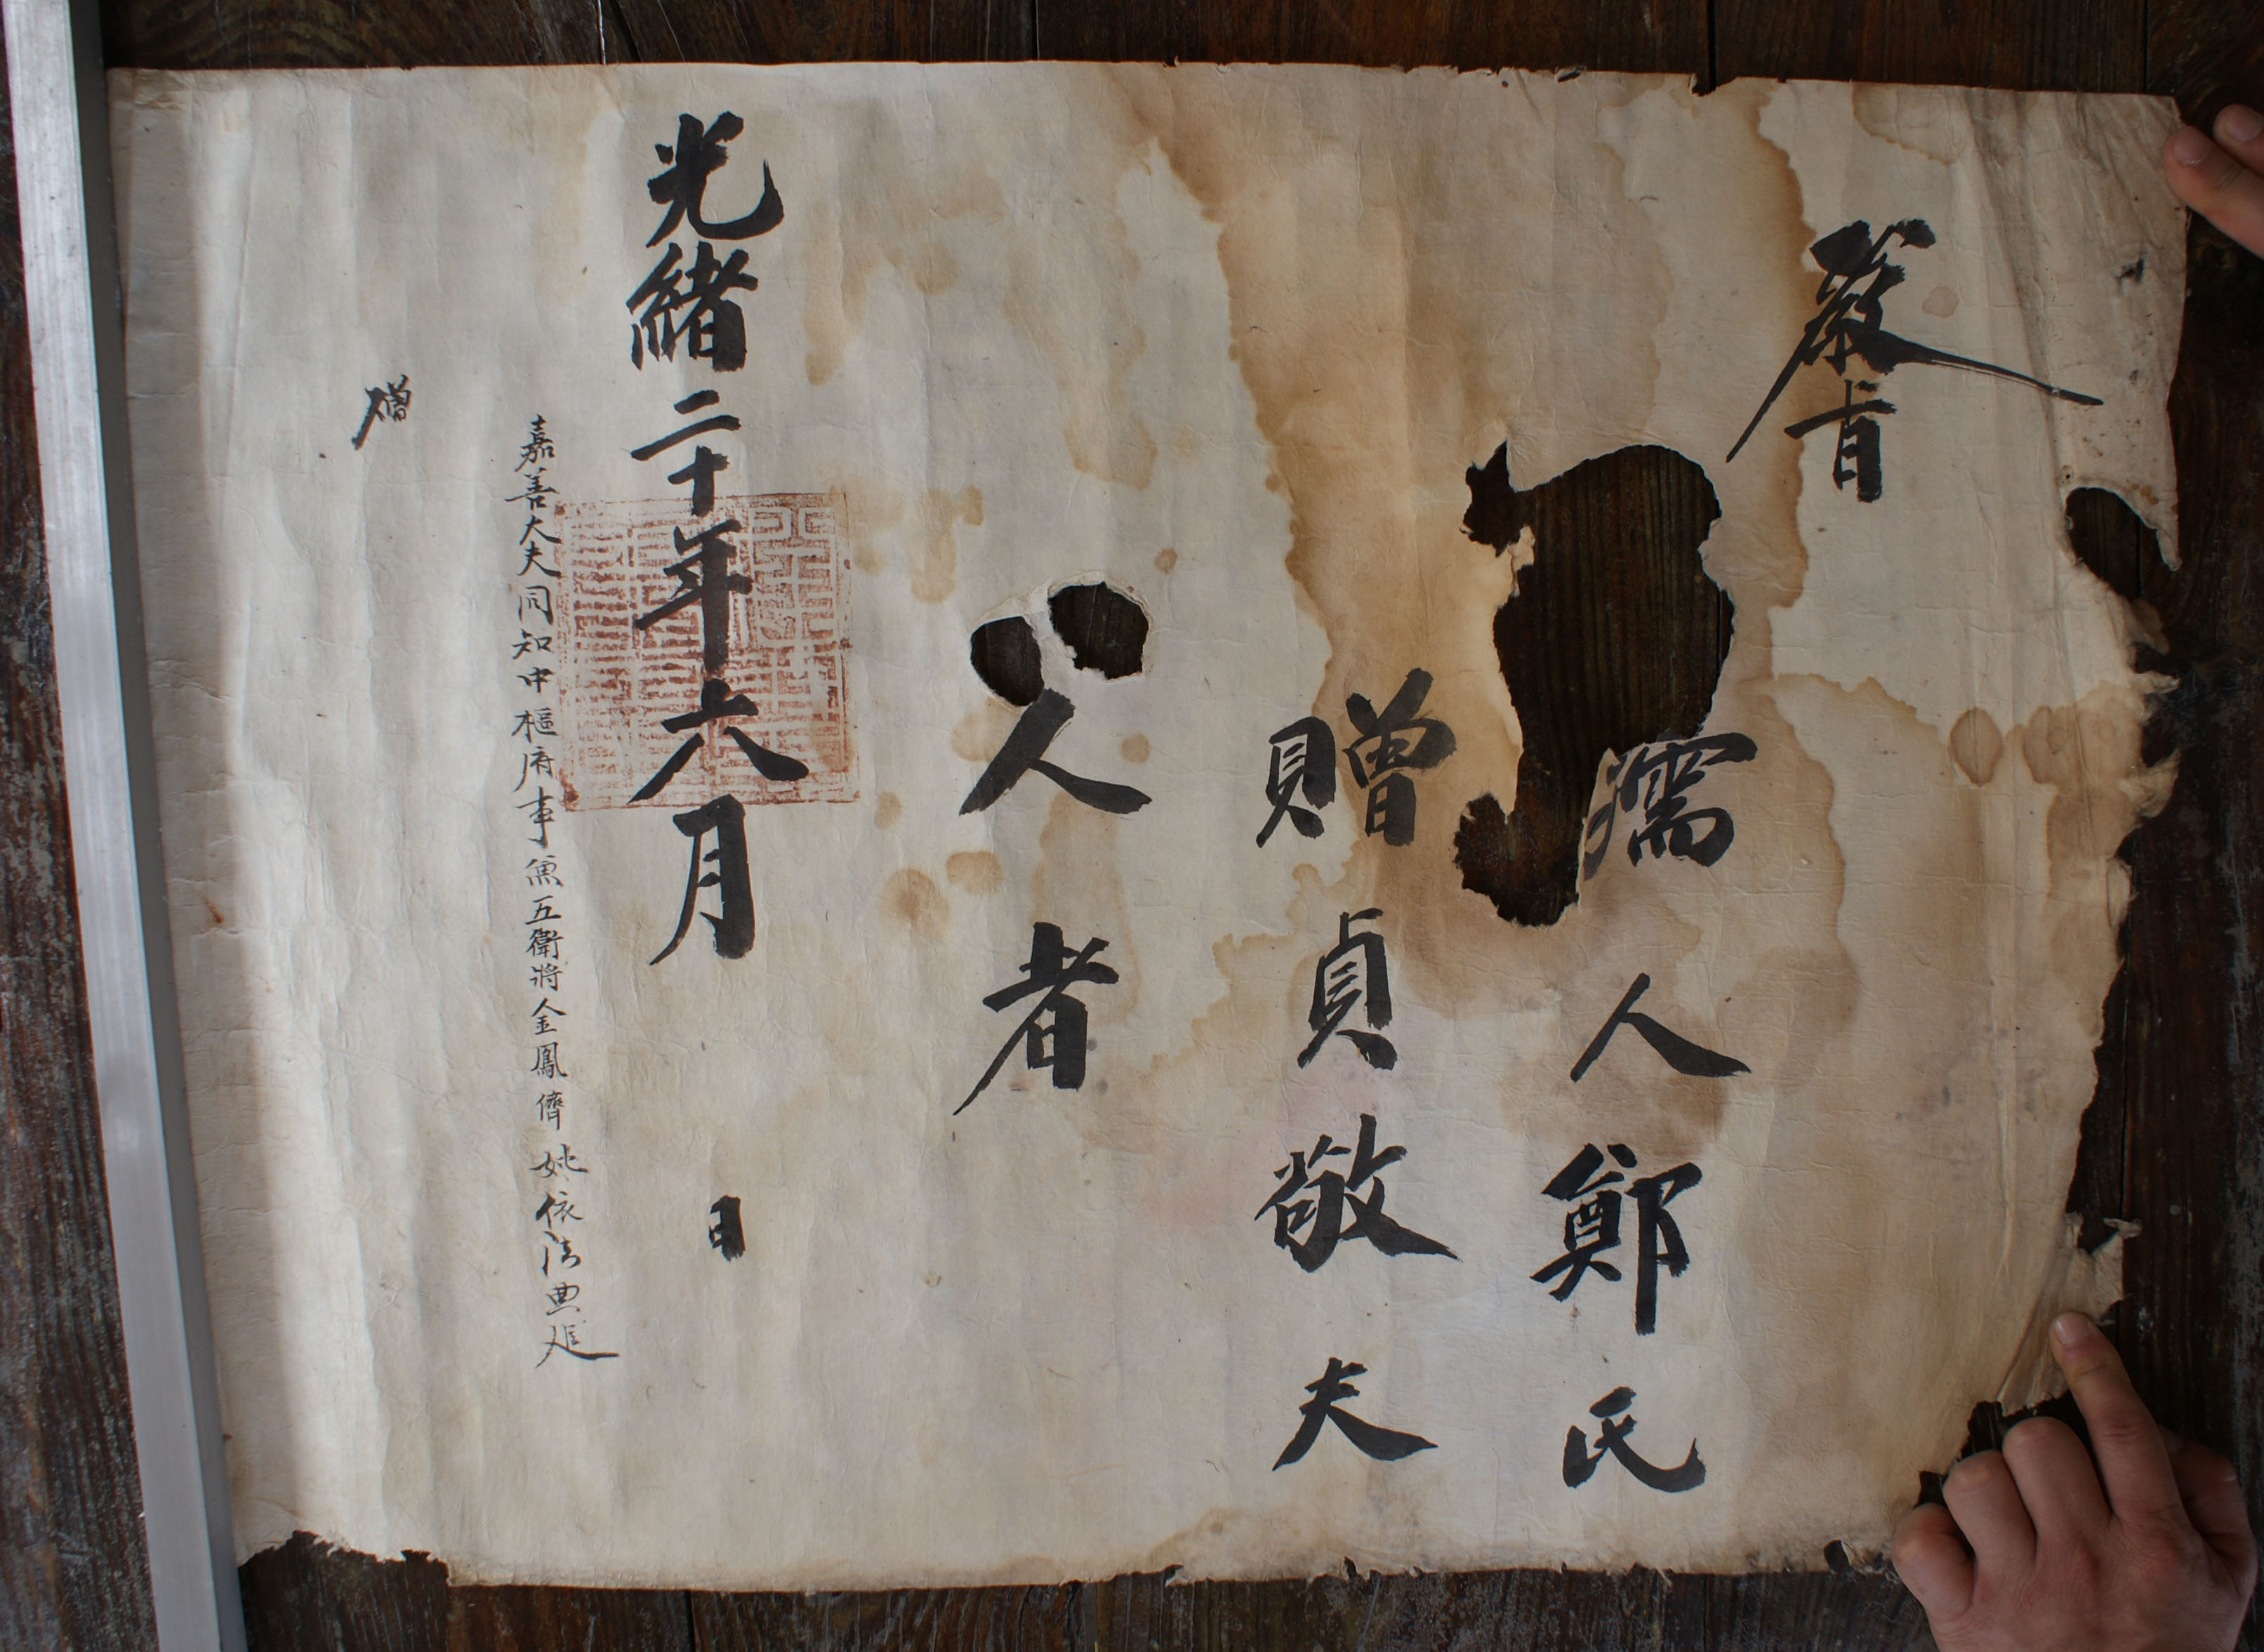 敎旨
孺人鄭氏
贈貞敬夫
人者
光緖二十年六月 日
嘉善大夫同知中樞府事兼五衛將金鳳儕妣依法典追
贈